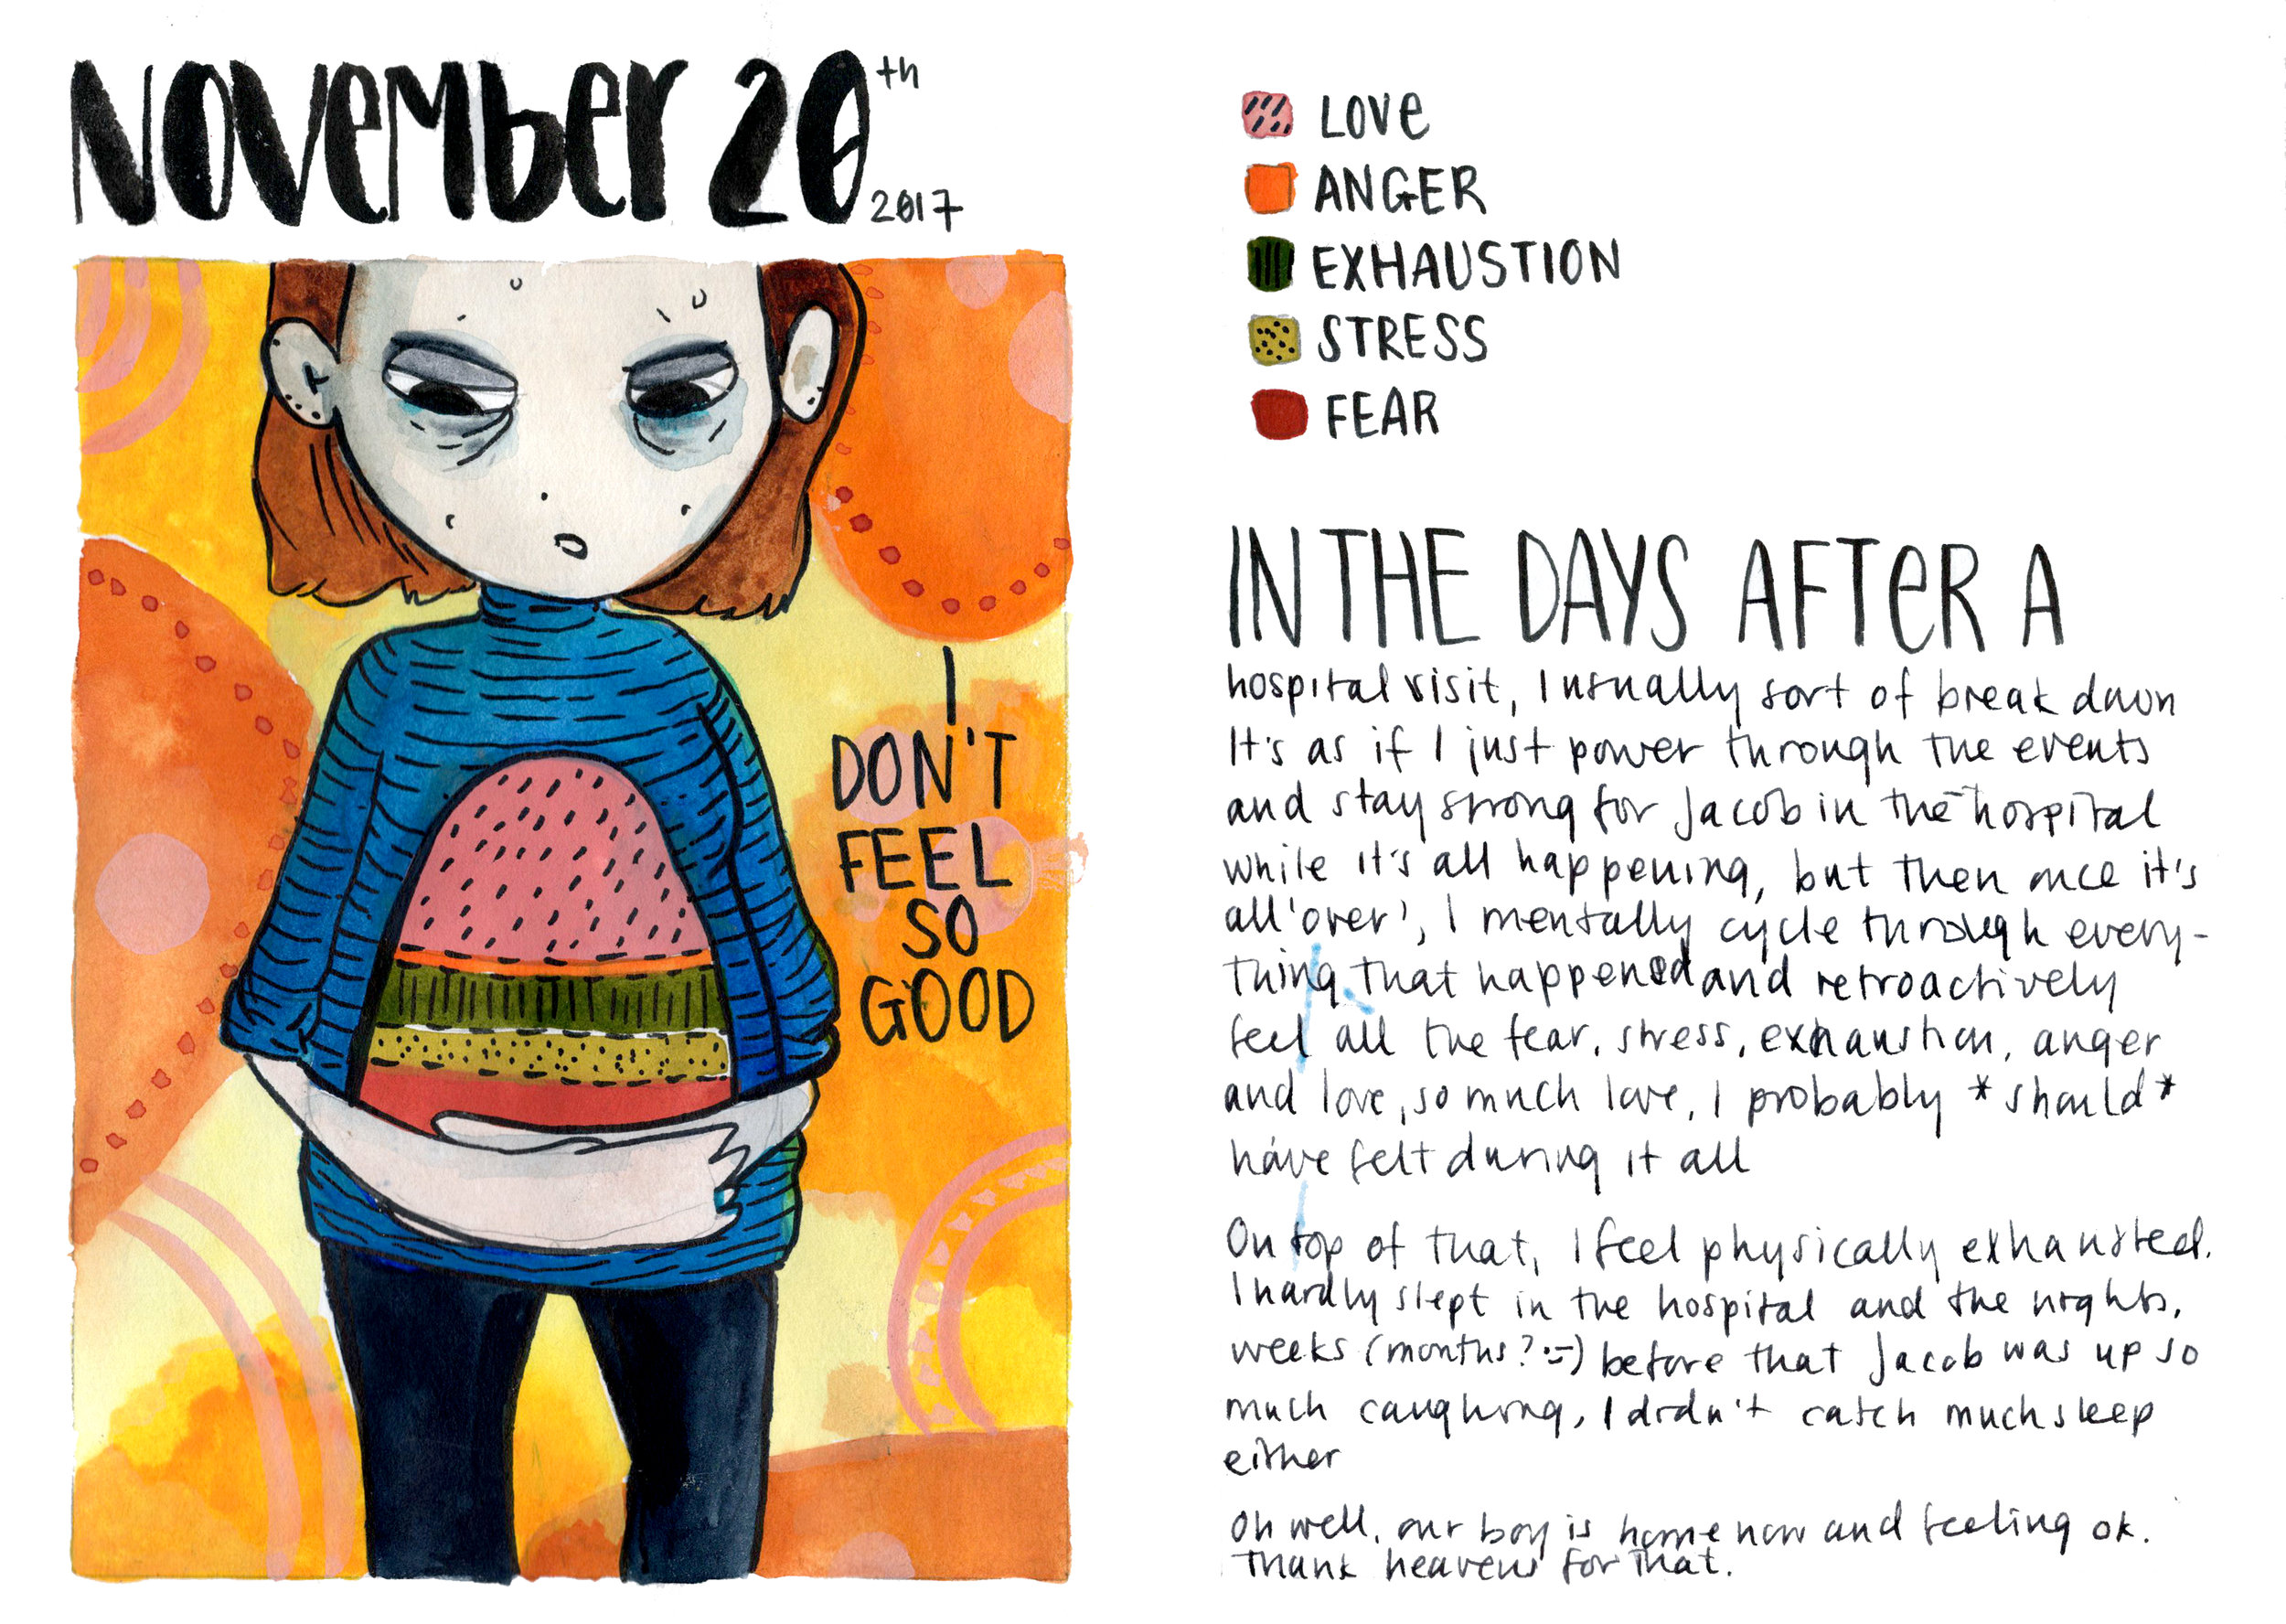 November 20th
2017
I
DON'T
FEEL
SO
GOOD
LOVE
ANGER
EXHAUSTION
STRESS
FEAR
IN THE DAYS AFTER A
hospital visit, I usually sort of break down
It's as if I just power through the events
and stay strong for Jacob in the hospital
while it's all happening, but then once it's
all 'over', I mentally cycle through every-
thing that happened and retroactively
feel all the fear, stress, exhaustion, anger
and love, so much love, I probably *should*
have felt during it all
On top of that, I feel physically exhausted.
I hardly slept in the hospital and the nights,
weeks (months? :-) before that Jacob was up so
much caughing, I didn't catch much sleep
either
Oh well, our boy is home now and feeling ok.
Thank heavens for that.